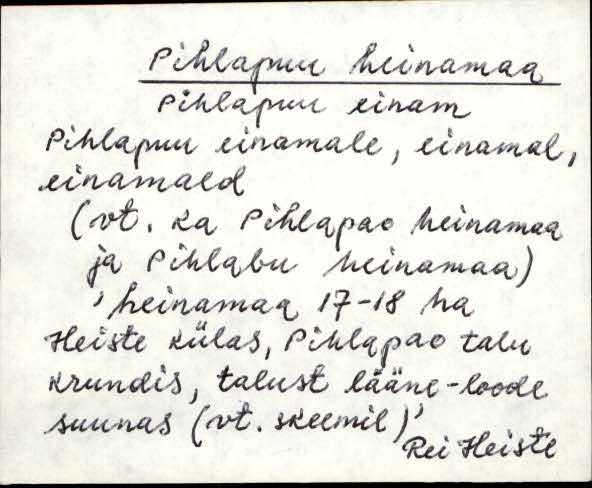 Pihlapuu heinamaa
Pihlapuu einam
Pihlapuu einamale, einamal,
einamald
(vt. ka Pihlapao heinamaa
ja Pihlabu heinamaa)
'heinamaa 17-18 ha
Heiste külas, Pihlapao talu
krundis, talust lääne-loode
suunas (vt. skeemil)'
Rei Heiste